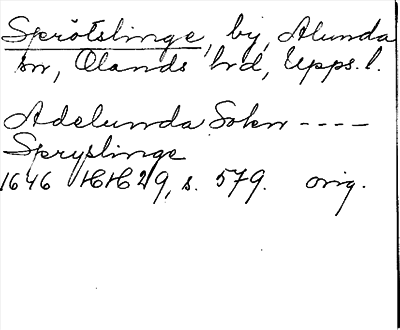 Sprötslinge, by, Alunda
sn, Olands hd, Upps. l.
Adelunda Sokn ----
Spryslinge
1646 HH 29, s. 579. orig.